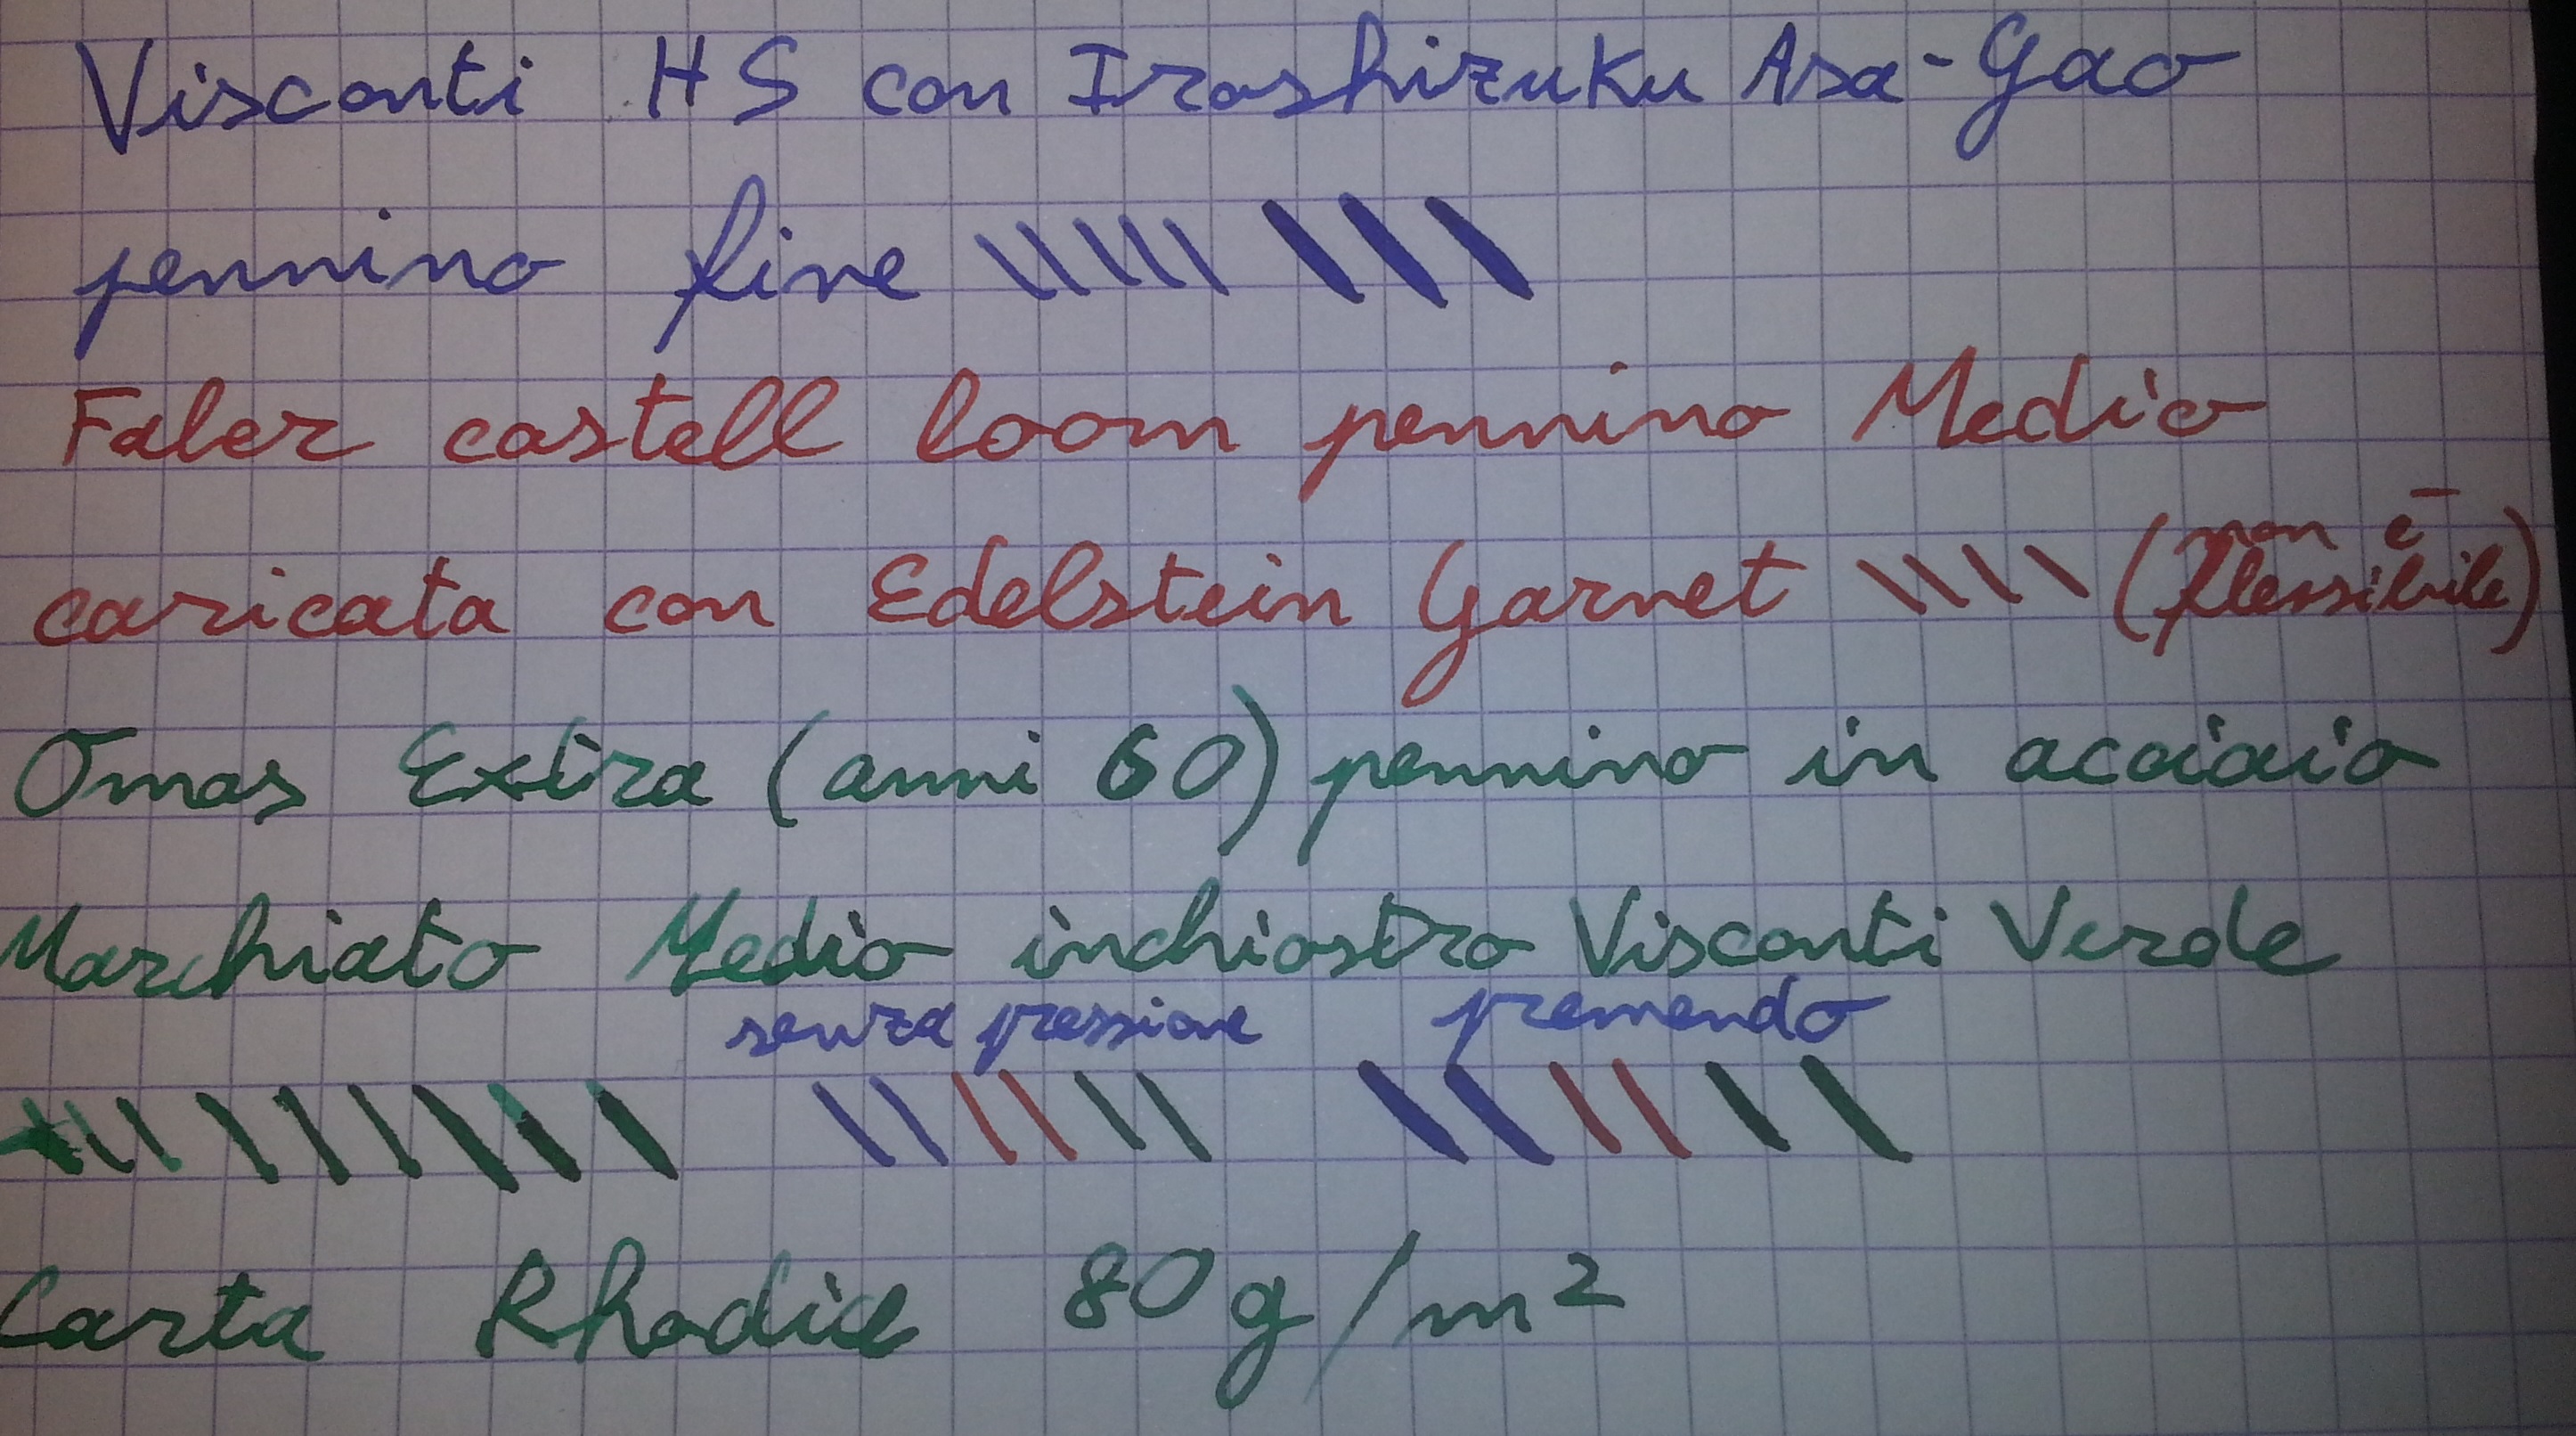 Visconti HS con Iroshizuku Asa-Gao
pennino fine
Faber castell loom pennino Medio
caricata con Edelstein Garnet (non è flessibile)
Omas Extra (anni 60) pennino in acciaio
Marchiato Medio inchiostro Visconti Verde
senza pressione premendo
Carta Rhodia 80 g/m²